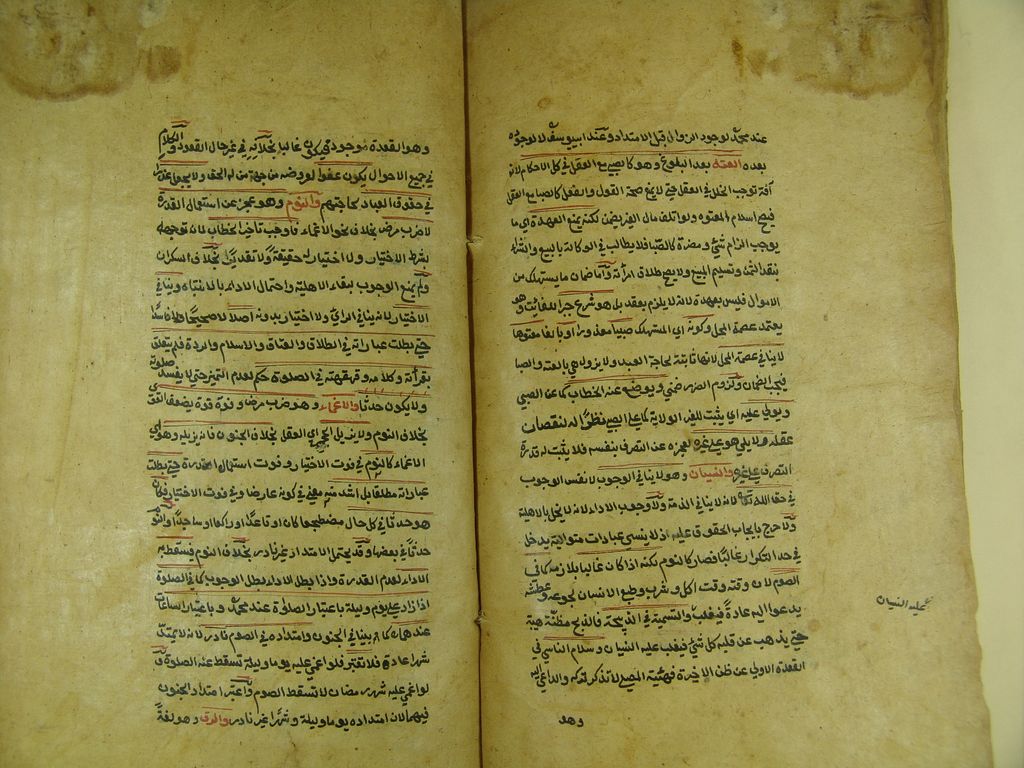 عند محمد لوجود الزوال قبل الامتداد وعند ابي يوسف لا لوجوده
بعده العته بعد البلوغ وهو كالصبي مع العقل في كل الاحكام لانه
آفة توجب الخلل في العقل حتى لا يمنع صحة القول والفعل كالصبا مع العقل
فيصح اسلام المعتوه ولو اتلف مال الغير يضمن لكنه يمنع العهدة اي ما
يوجب الزام شئ ومضرة كالصبا فلا يطالب في الوكالة بالبيع والشراء
بنقد الثمن وتسليم المبيع ولا يصح طلاق امرأته واما ضمان ما يستهلك من
الاموال فليس بعهدة لانه لا يلزم بعقد بل هو شرع جبرا للفائت وهو
يعتمد عصمة المحل وكونه اي المستهلك صبيا معذورا او بالغا معتوها
لا ينافي عصمة المحل لانها ثابتة لحاجة العبد ولا يزول هي بالعته والصبا
فيجب الضمان ولزوم الضرر ضمني ويوضع عنه الخطاب كما عن الصبي
ويولى عليه اي يثبت للغير الولاية كما على الصبي نظرا له لنقصان
عقله ولا يلي هو على غيره لعجزه عن التصرف بنفسه فلا يثبت له قدرة
التصرف على غيره والنسيان وهو لا ينافي الوجوب لا نفس الوجوب
في حق الله تعالى لانه لا ينافي الذمة ولا وجوب الاداء لانه لا يخل بالاهلية
ولا حرج بايجاب الحقوق عليه اذ لا ينسى عبادات متوالية يدخل
في حد التكرار غالبا فصار كالنوم لكنه اذا كان غالبا يلازمه كما في
الصوم لان وقته وقت اكل وشرب وطبع الانسان لجوعه وعطشه
يدعو اليه عادة فيغلب والتسمية في الذبيحة فالذبح مظنة هيبة
حتى يذهب عن قلبه كل شئ فيغلب عليه النسيان وسلام الناسي في
القعدة الاولى عن ظن الاخيرة فهيئة المصلي لا تذكر لتركه والداعي اليه
وهو
وهو القعدة موجود فيكون غالبا بخلافه في غير حال القعود والكلام
في جميع الاحوال يكون عفوا لعروضه من جهة من له الحق ولا يجعل عذرا
في حقوق العباد لحاجتهم والنوم وهو عجز عن استعمال القدرة
لا ضرب مرض بخلاف نحو الاغماء فاوجب تأخير الخطاب لان توجهه
بشرط الاختيار ولا اختيار له حقيقة ولا تقديرا بخلاف السكران
ولم يمنع الوجوب ببقاء الاهلية واحتمال الاداء بالانتباه وينافي
الاختيار لانه ينافي الرأي ولا اختيار بدونه اصلا لا صحيحا ولا فاسدا
حتى بطلت عباراته في الطلاق والعتاق والاسلام والردة فلم يتعلق
بقرائته وكلامه وقهقهته في الصلوة حكم لعدم التميز حتى لا يفسد صلوته
ولا يكون حدثا والاغماء وهو ضرب مرض وفوت قوة يضعف القوى
بخلاف النوم ولا يزيل الحجى اي العقل بخلاف الجنون فانه يزيله وهو اي
الاغماء كالنوم في فوت الاختيار وفوت استعمال القدرة حتى بطلت
عباراته مطلقا بل اشد منه معنى في كونه عارضا وفي فوت الاختيار فكان
هو حدثا في كل حال مضطجعا كان او قاعدا او راكعا او ساجدا والنوم
حدثا في بعضها وقد يحتمل الامتداد غير نادر بخلاف النوم فيسقط به
الاداء لعدم القدرة واذا بطل الاداء بطل الوجوب كما في الصلوة
اذا زاد على يوم وليلة باعتبار الصلوات عند محمد وباعتبار الساعات
عندهما كما بينا في الجنون وامتداده في الصوم نادر لانه لا يمتد
شهرا عادة فلا تعتبر فلو اغمي عليه يوما وليلة تسقط عنه الصلوة
لو اغمي عليه شهر رمضان لا تسقط الصوم واعتبر امتداد الجنون
فيهما لان امتداده يوما وليلة وشهرا غير نادر والرق وهو لغة